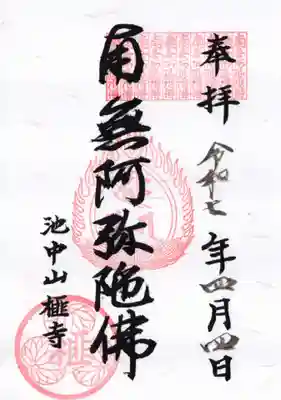 奉拝
令和七年四月四日
南無阿弥陀佛
池中山榧寺